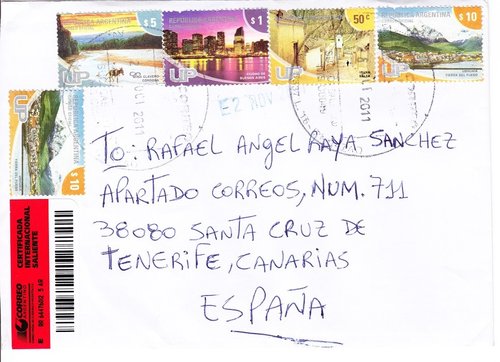 REPÚBLICA ARGENTINA $5
CLAVERO
CÓRDOBA
UP
REPÚBLICA ARGENTINA $1
UP
CIUDAD DE
BUENOS AIRES
50c
UP
REPÚBLICA ARGENTINA $10
UP
USHUAIA
TIERRA DEL FUEGO
2011
2011
22 NOV
UP
$10
TO: RAFAEL ANGEL RAYA SANCHEZ
APARTADO CORREOS, NUM. 711
38080 SANTA CRUZ DE
TENERIFE, CANARIAS
ESPAÑA
CERTIFICADA
INTERNACIONAL
SALIENTE
CORREO
ARGENTINO